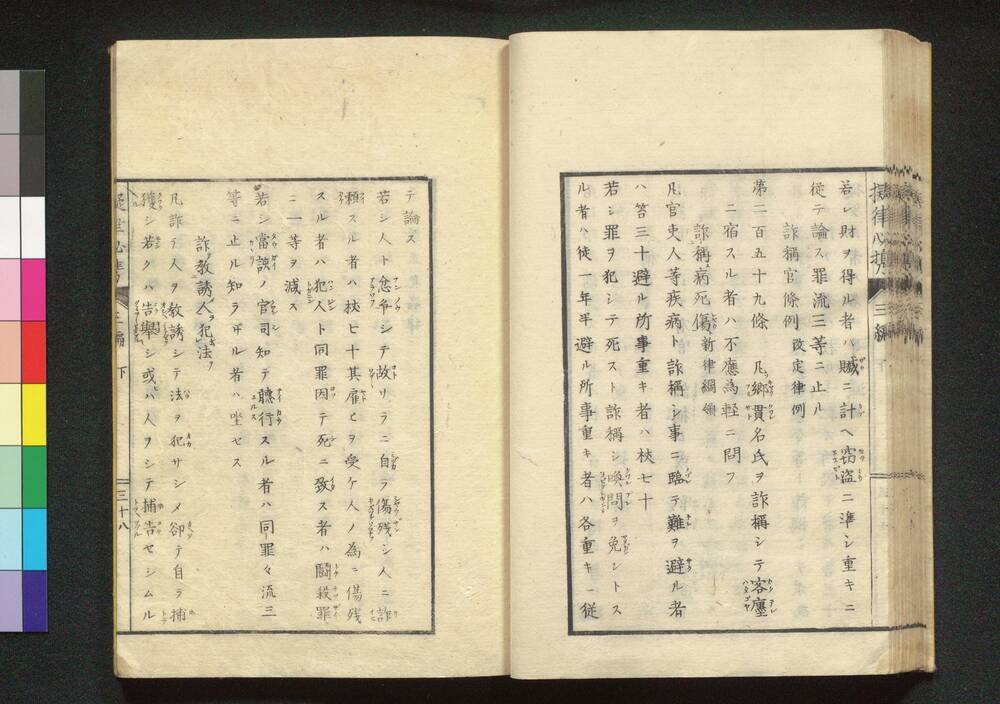 若シ財ヲ得ル者ハ贓ニ計ヘ窃盗ニ準シ重キニ
従テ論ス罪流三等ニ止ル
詐稱官條例 改定律例
第二百五十九條 凡郷貫名氏ヲ詐稱シテ客廛
ニ宿スル者ハ不應為軽ニ問フ
詐稱病死傷 新律綱領
凡官吏人等疾病ト詐稱シ事ニ臨テ難ヲ避ル者
ハ笞三十避ル所事重キ者ハ杖七十
若シ罪ヲ犯シテ死スト詐稱シ喚問ヲ免ントス
ル者ハ徒一年半避ル所事重キ者ハ各重キニ従
テ論ス
若シ人ト忿争シテ故リラニ自ラ傷残シ人ニ詐
頼スル者ハ杖七十其雇ヒヲ受ケ人ノ為ニ傷残
スル者ハ犯人ト同罪因テ死ニ致ス者ハ闘殺罪
ニ一等ヲ減ス
若シ當該ノ官司知テ聴行スル者ハ同罪々流三
等ニ止ル知ラサル者ハ坐セス
詐教誘人犯法
凡詐テ人ヲ教誘シテ法ヲ犯サシメ卻テ自ラ捕
獲シ若クハ告舉シ或ハ人ヲシテ捕告セシムル
三編 下
三十八
三編